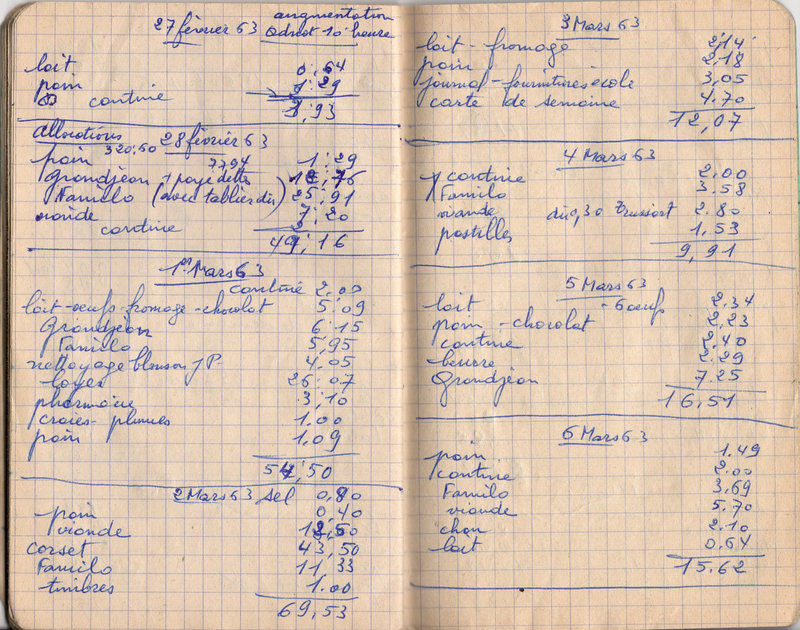 27 février 63 augmentation
Edscot 10 heure
lait 0,64
pain 1,29
cantine
1,93
allocations 28 février 63
320,60
7794
pain 1,29
Grandjean + payé dette 12,76
Familo (avec tablier du) 25,91
viande 7,20
cantine 2
49,16
1er Mars 63
cantine 2,00
lait-oeufs-fromage-chocolat 5,09
Grandjean 6,15
Familo 5,95
nettoyage blouson JP. 4,05
loyer 26,07
pharmacie 3,10
craies-plumes 1,00
pain 1,09
54,50
2 Mars 63 sel 0,80
pain 0,40
viande 12,50
corset 43,50
Familo 11,33
timbres 1.00
69,53
3 Mars 63
lait-fromage 2,14
pain 2,18
journal-fournitures école 3,05
carte de semaine 4,70
12,07
4 Mars 63
cantine 2,00
Familo 3.58
viande dû 0,30 2.80
pastilles 1,53
9,91
5 Mars 63
lait - 6 oeufs 2,34
pain-chocolat 2,23
cantine 2,40
beurre 2.29
Grandjean 7.25
16,51
6 Mars 63
pain 1.49
cantine 2.00
Familo 3,69
viande 5.70
chou 2.10
lait 0.64
15.62